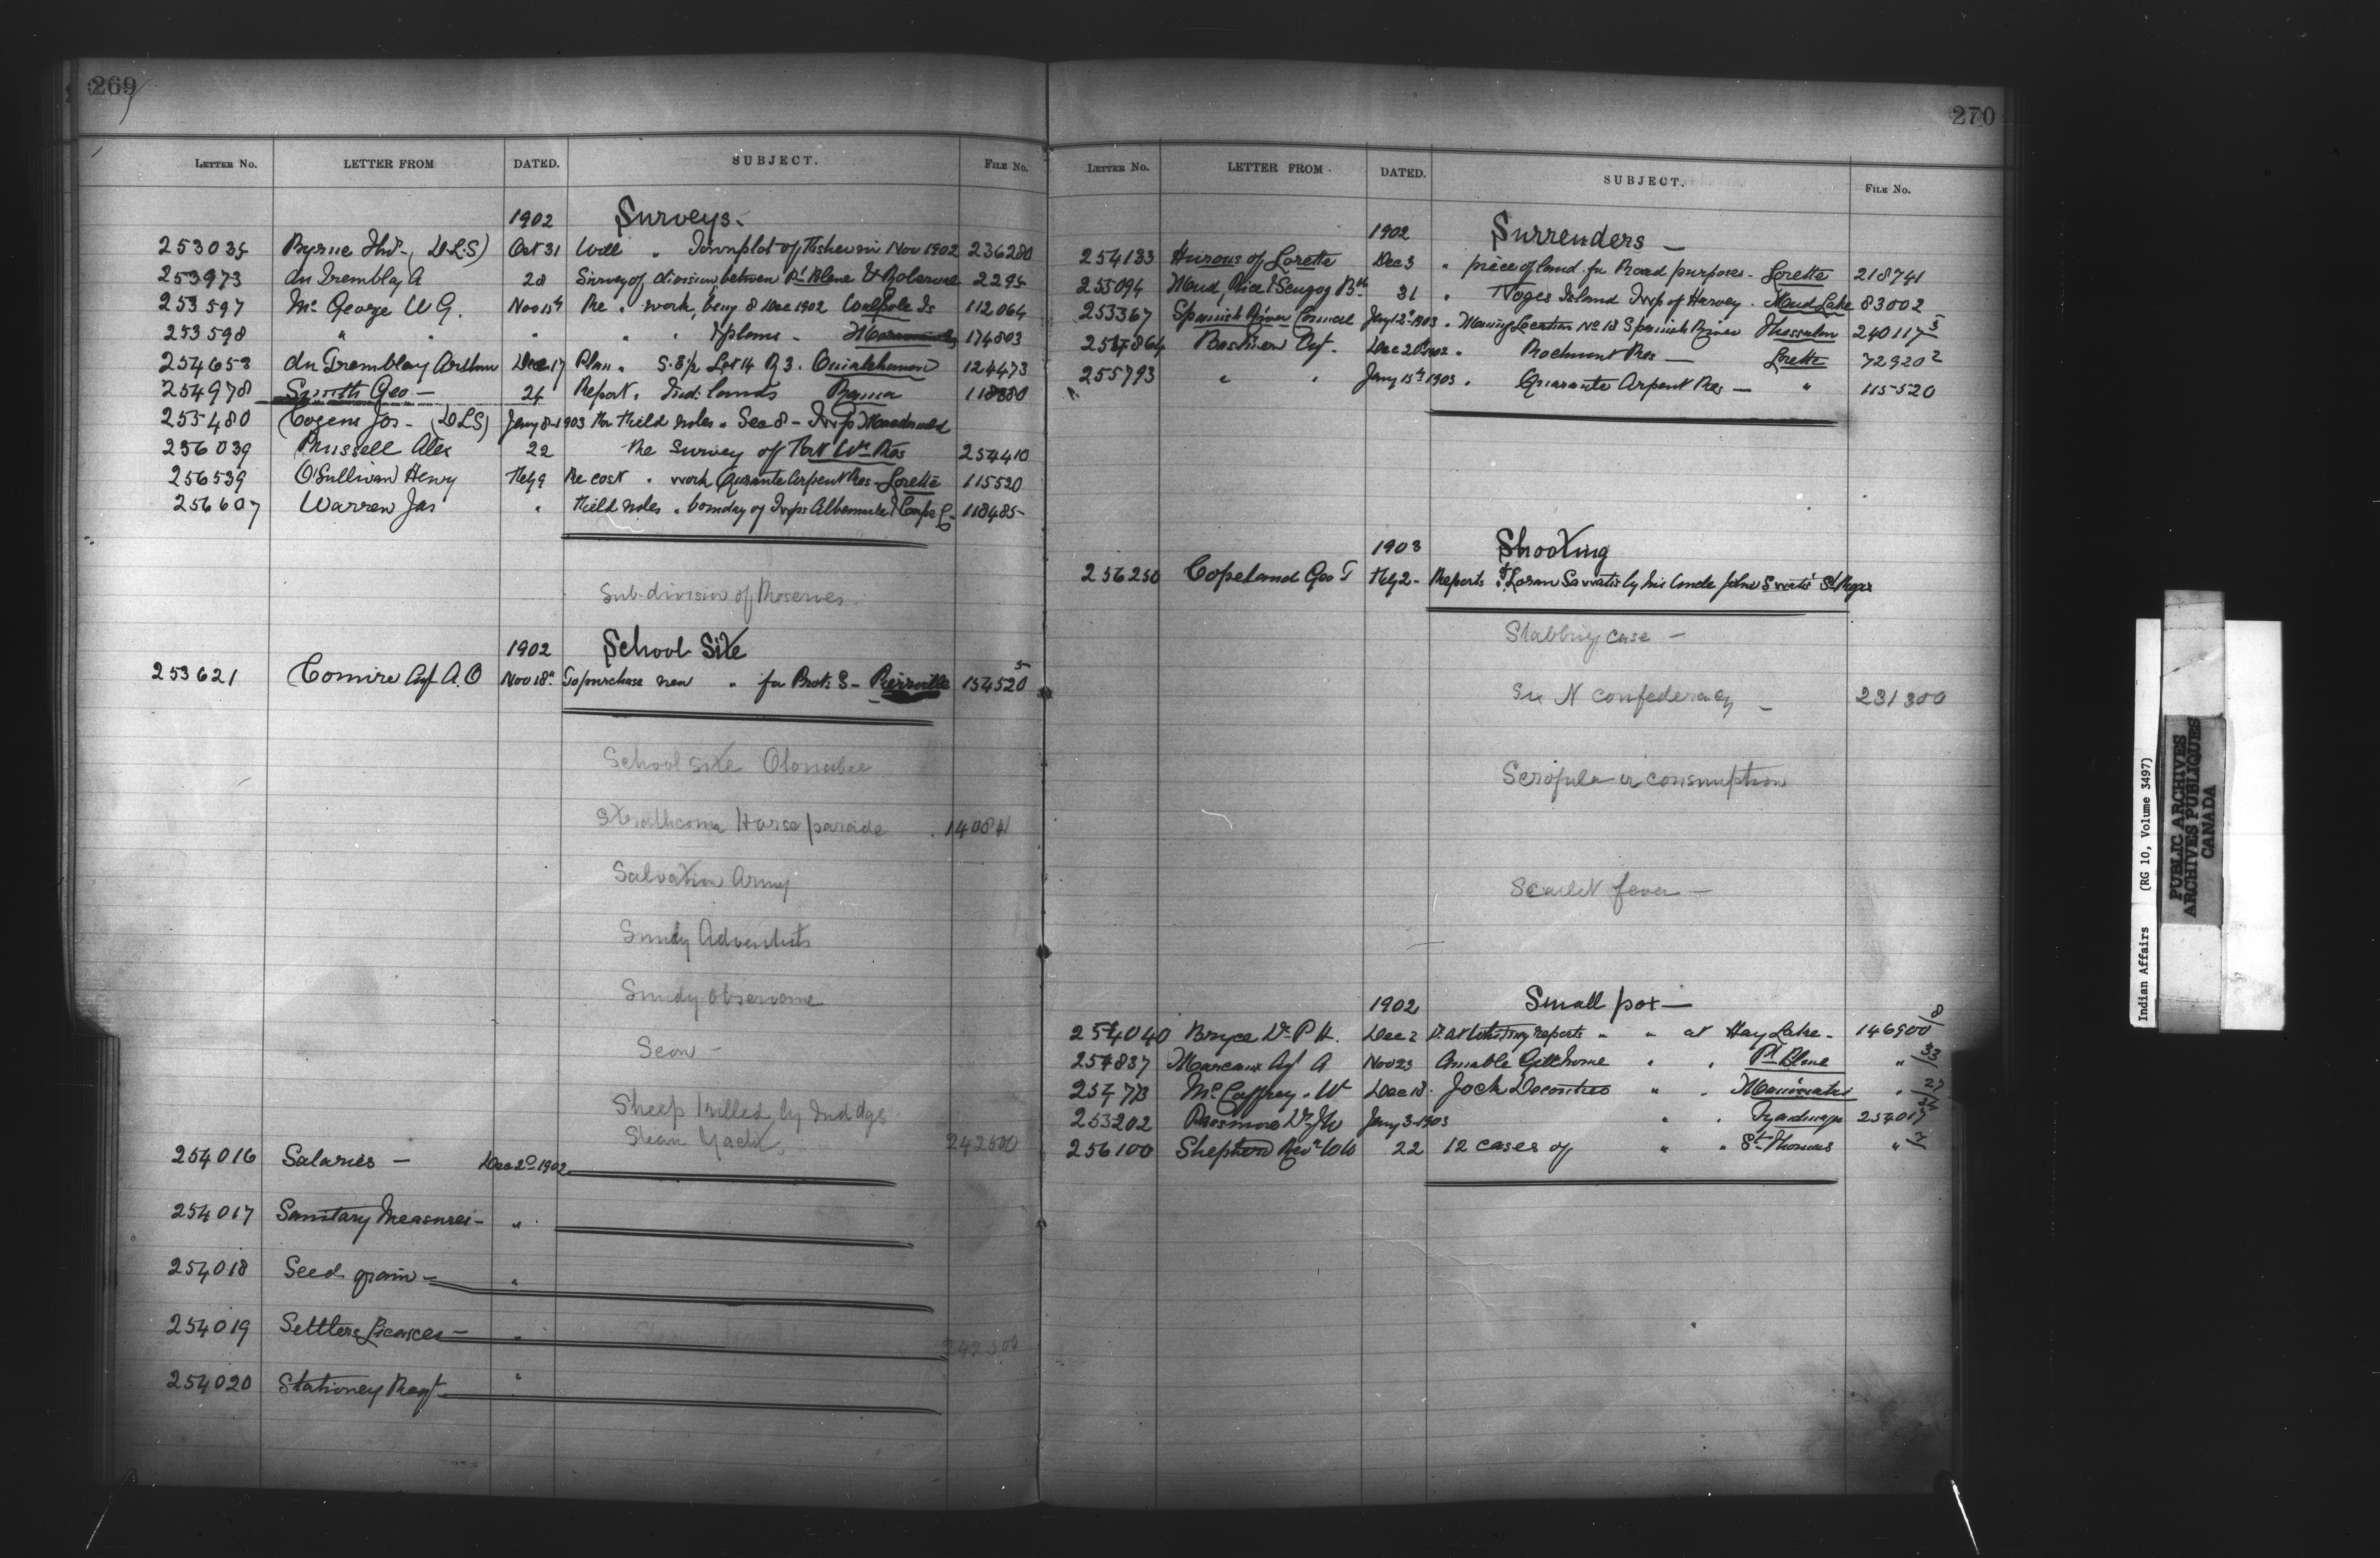 269
LETTER NO. LETTER FROM DATED. SUBJECT. FILE No.
1902 Surveys-
253035 Byrne Thos. (D.L.S) Oct 31 Will " Townplot of in Nov 1902 236280
253973 du Tremblay A 28 Survey of division between Pt Blene & Roberval 2295
253597 Mc George W G. Nov 15th Re " work, beny 8 Dec 1902 Walpole Is 112064
253598 " " " " " & plans - 174803
254653 du Tremblay Arthur Dec 17 Plan " S. 8 1/2 Lot 14 R 3. Ouiatchouan 124473
254978 Smith Geo - 24 Report " Ind: lands Rama 118380
255480 Cozens Jos - (DLS) Jany 8-1903 for Field notes " Sec 8 - Twp Macdonald
256039 Russell Alex 22 the Survey of Fort Wm Res 254410
256539 O'Sullivan Henry Feby 9 Re cost " work Quarante Arpent Res - Lorette 115520
256607 Warren Jas " Field notes " bounday of Twps Albemarle & Cape C- 118485-
Sub-division of Reserves
1902 School Site
253621 Comire Agt A.O Nov 18th To purchase new " for Prot: S- Pierreville 154520 5
School site Otonabee
Strathcona Horse parade . 14084
Salvation Army
Sundy Adventists
Sundy observance
Scow -
Sheep killed by Ind dgs
Steam Yacht 242500
254016 Salaries - Dec 2d 1902
254017 Sanitary Measures - "
254018 Seed grain - "
254019 Settlers Licences - "
242500
254020 Stationey Reqt - "
270
LETTER NO. LETTER FROM. DATED. SUBJECT. FILE No.
1902 Surrenders -
254133 Hurons of Lorette Dec 3 " piece of land for Road purposes - Lorette 218741
255094 Mud, Rice & Scugog Bds 31 " Noges Island Twp of Harvey . Mud Lake 83002
253367 Spanish River Council Jany 12th 1903 " Mining Location No 18 Spanish River Thessalon 240117 5
254864 Bastien Agt. Dec 20th 1902 " Rockmont Res - Lorette 72920 2
255793 " " Jany 15th 1903 " Quarante Arpent Res - " 115520
1903 Shooting
256250 Copeland Geo T Feby 2 - Reports " of Loran Sawatis by his Uncle John Swatis St Regis
Stabbing case -
Six N confederacy - 231300
Scrofula or consumption
Scarlet fever -
1902 Small pox -
254040 Bryce Dr P H. Dec 2 reports " " at Hay Lake - 146900/8
254837 Marcoux Agt A Nov 23 Amable Gillhome " " Pt Blene " /33
254773 Mc Caffrey. W Dec 18 . Jock Decontres " . Maniwaki " 27
253202 Passmore Dr J W Jany 3-1903 " . Tyendinaga 254017
256100 Shepherd Revd W W 22 12 cases of " " St Thomas " /2
Indian Affairs (RG 10, Volume 3497)
PUBLIC ARCHIVES
ARCHIVES PUBLIQUES
CANADA